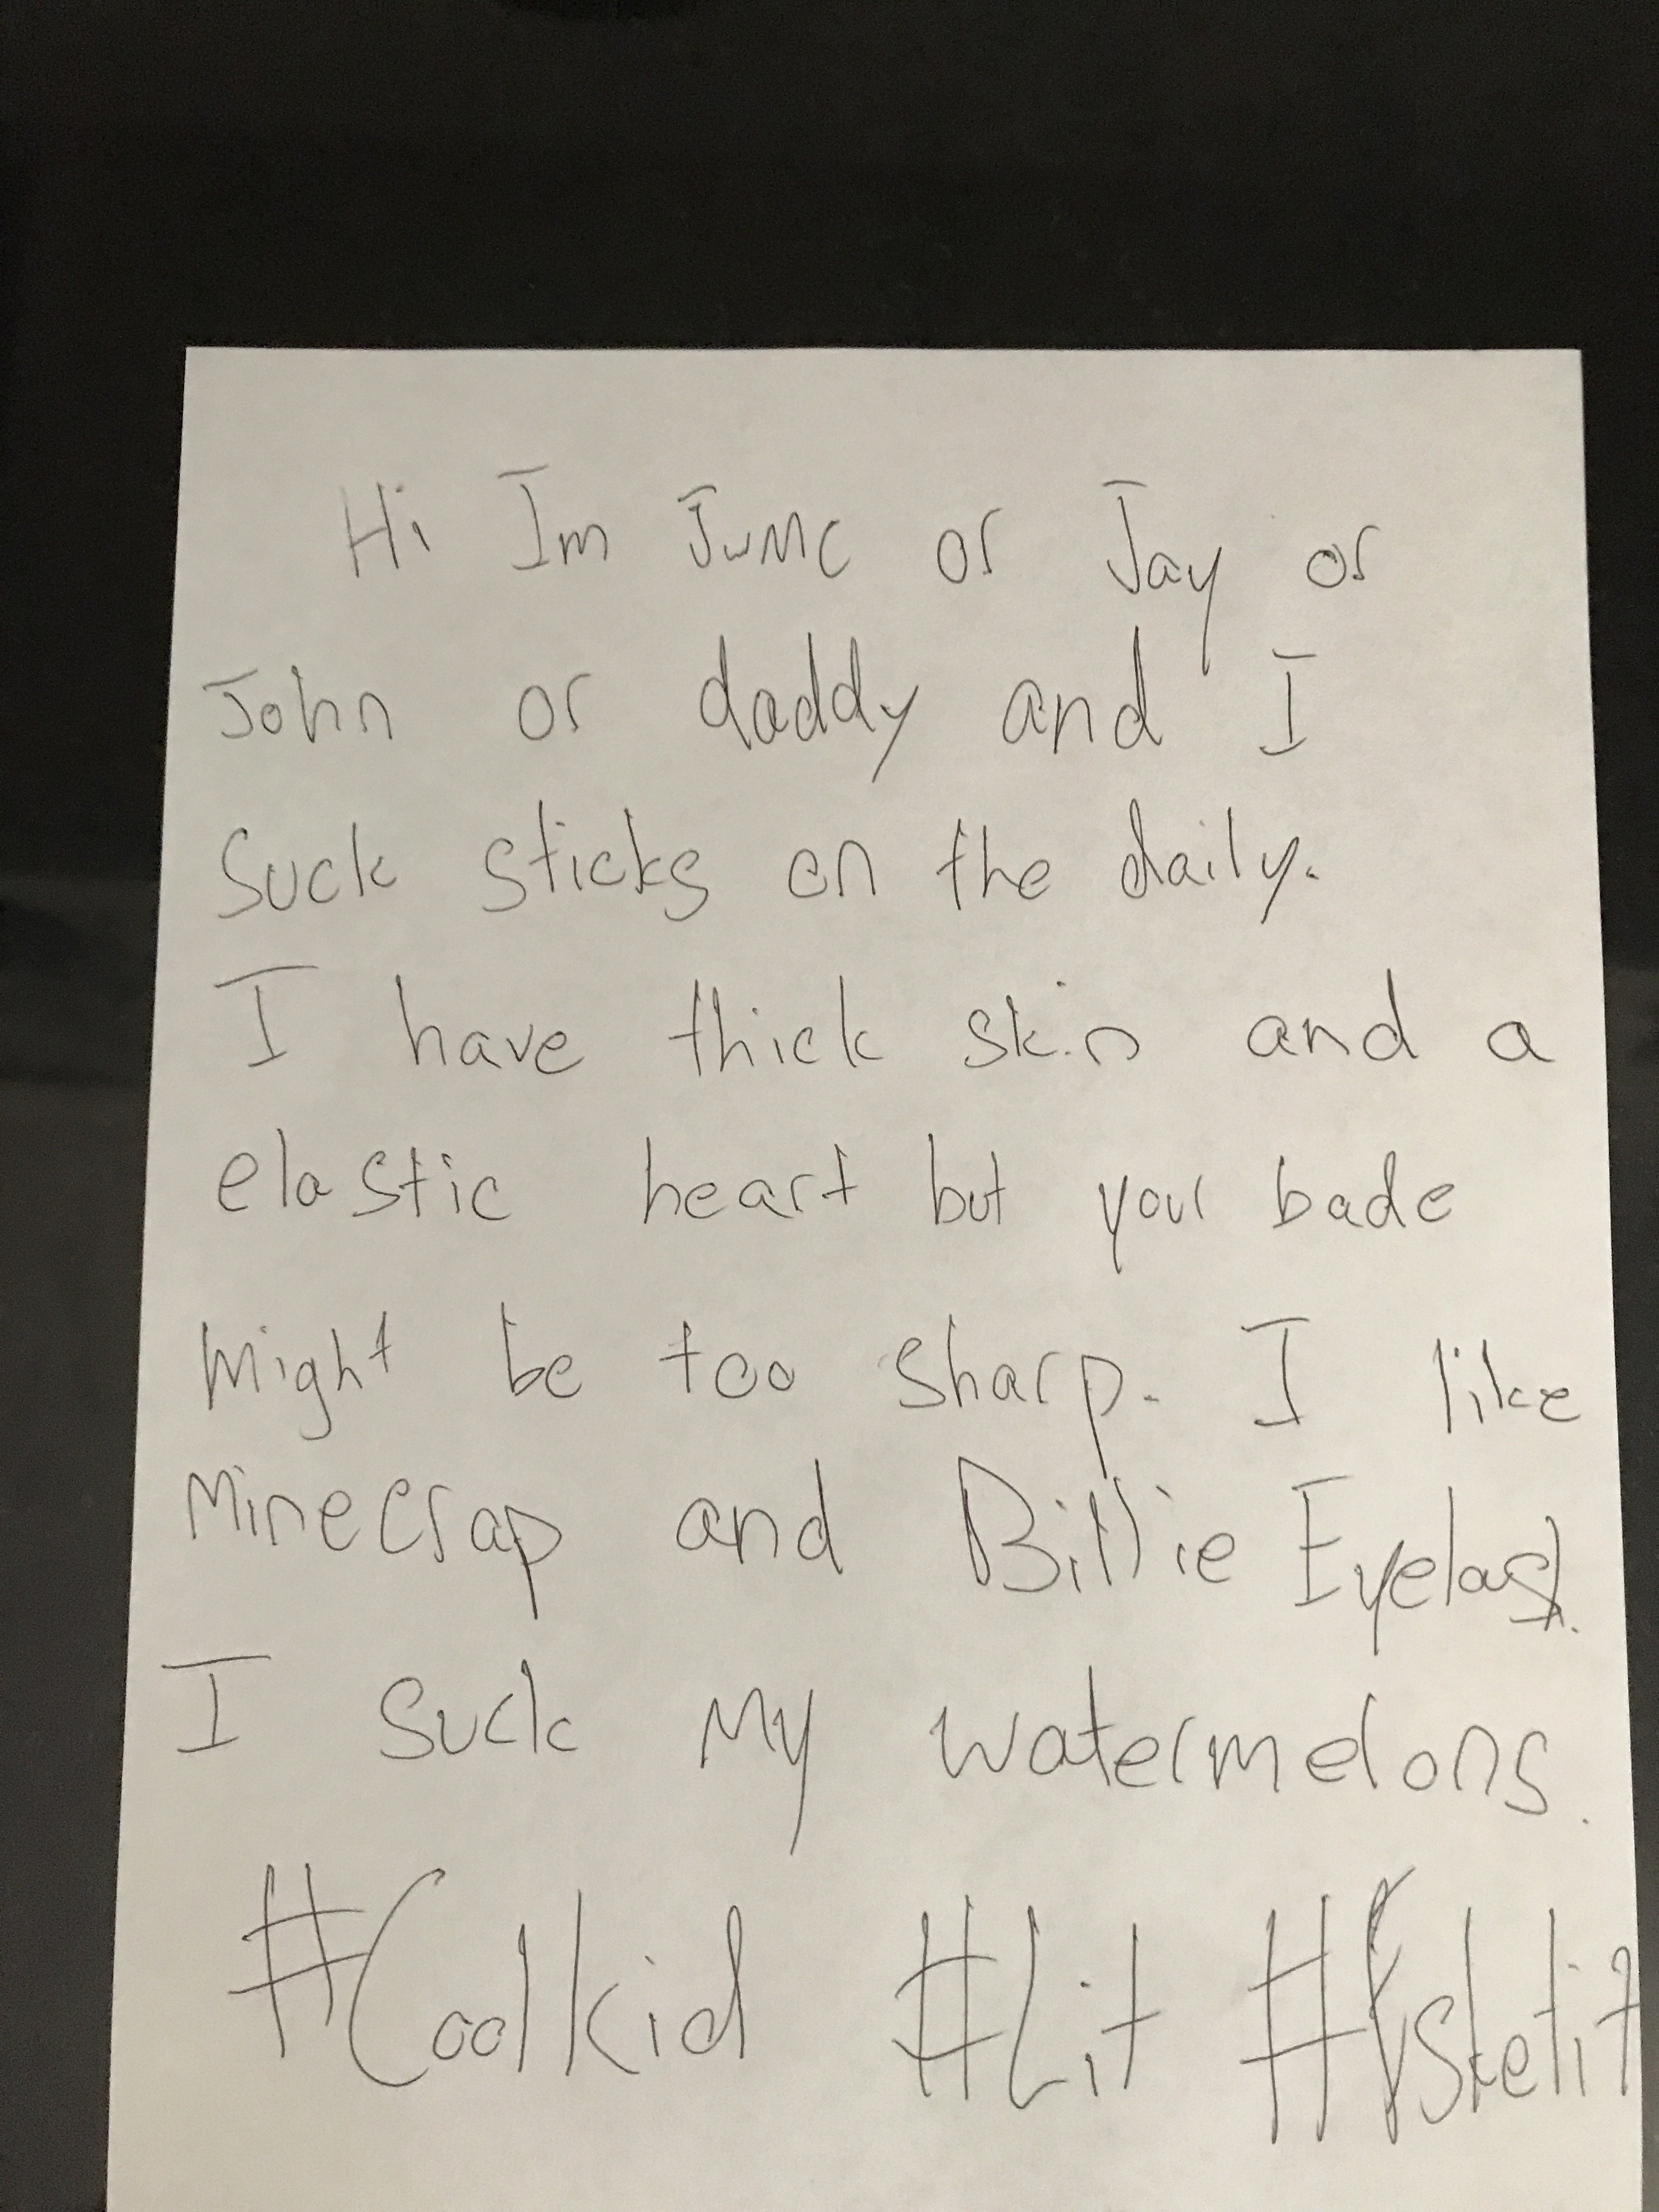 Hi Im Jumc or Jay or
John or daddy and I
suck sticks on the daily.
I have thick skin and a
elastic heart but your bade
might be too sharp. I like
Minecrap and Billie Eyelash.
I suck my watermelons.
#Coolkid #Lit